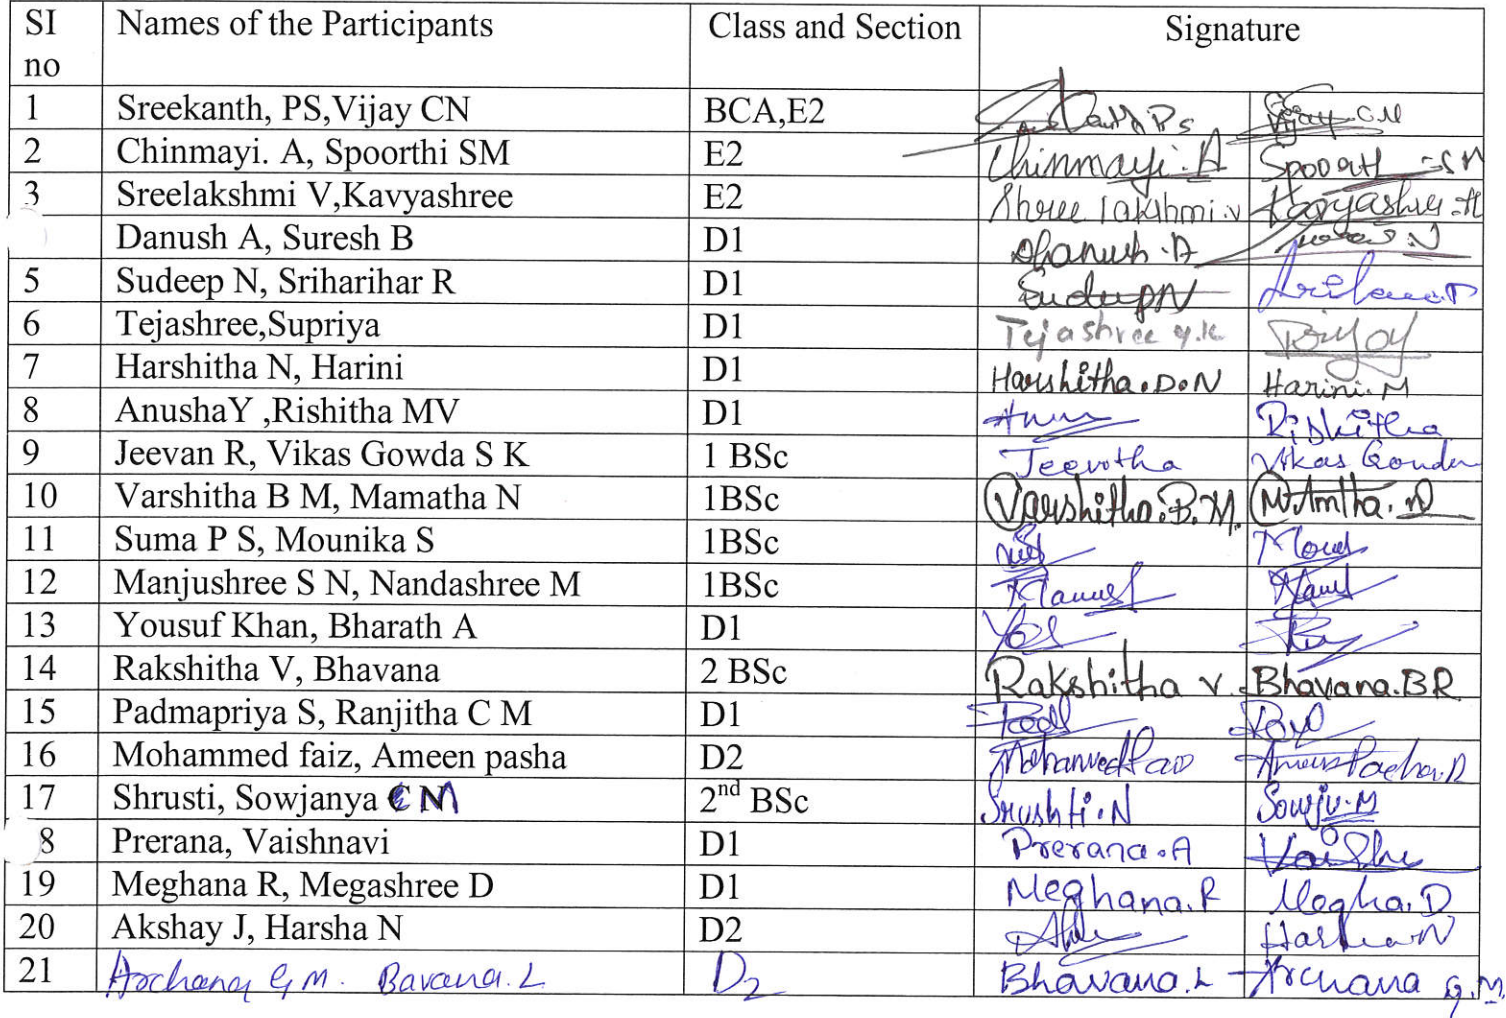 SI no Names of the Participants Class and Section Signature
1 Sreekanth, PS,Vijay CN BCA,E2 P s C N
2 Chinmayi. A, Spoorthi SM E2 Chinmayi. A Spoorth S M
3 Sreelakshmi V,Kavyashree E2 Shree lakshmi.v Kavyashree.H
Danush A, Suresh B D1 Dhanush.A
5 Sudeep N, Sriharihar R D1 Sudeep N
6 Tejashree,Supriya D1 Tejashree y.k
7 Harshitha N, Harini D1 Harshitha.D.N Harini.M
8 AnushaY ,Rishitha MV D1 Rishitha
9 Jeevan R, Vikas Gowda S K 1 BSc Vikas Gowda
10 Varshitha B M, Mamatha N 1BSc Varshitha.B.M. M.Amtha.N
11 Suma P S, Mounika S 1BSc
12 Manjushree S N, Nandashree M 1BSc
13 Yousuf Khan, Bharath A D1
14 Rakshitha V, Bhavana 2 BSc Rakshitha V. Bhavana.BR
15 Padmapriya S, Ranjitha C M D1
16 Mohammed faiz, Ameen pasha D2
17 Shrusti, Sowjanya C M 2nd BSc Srushti.N Sowju.M
8 Prerana, Vaishnavi D1 Prerana.A
19 Meghana R, Megashree D D1 Meghana.R Megha.D
20 Akshay J, Harsha N D2 Harsha N
21 Archana G M. Bavana.L D2 Bhavana.L Archana G.M